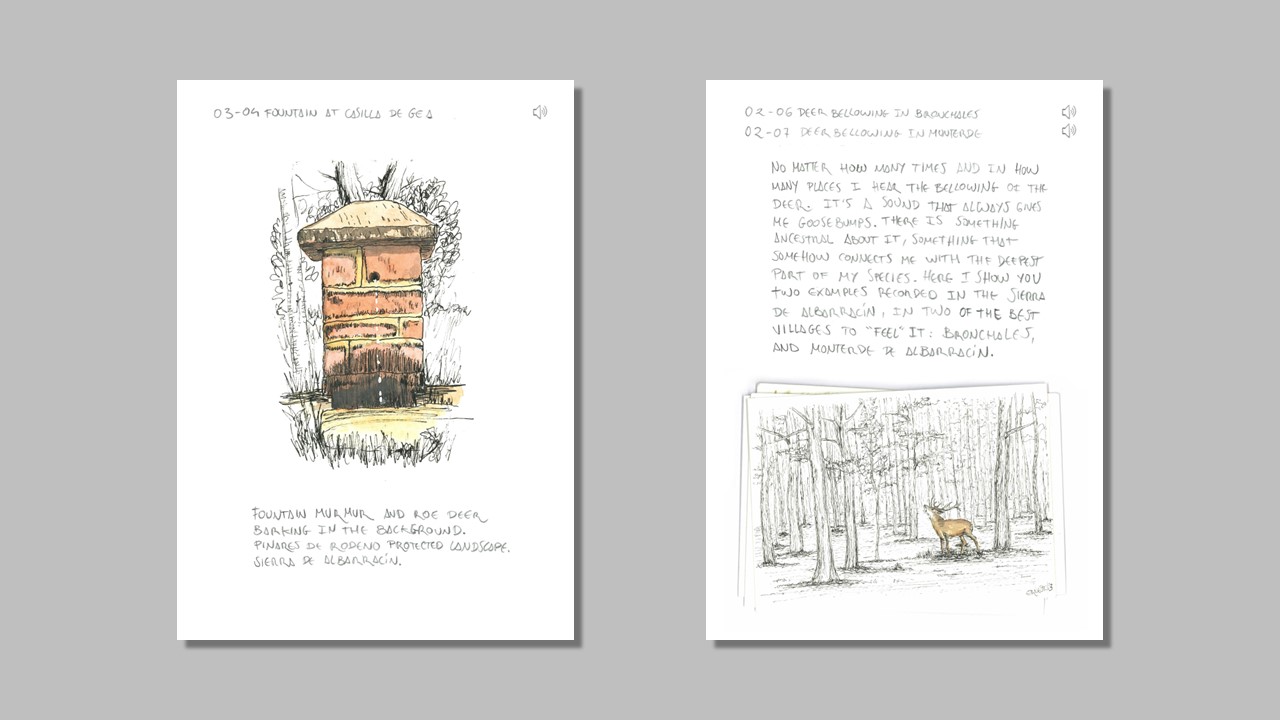 03-04 FOUNTAIN AT CASILLA DE GEA
FOUNTAIN MURMUR AND ROE DEER
BARKING IN THE BACKGROUND.
PINARES DE RODENO PROTECTED LANDSCAPE.
SIERRA DE ALBARRACÍN.
02-06 DEER BELLOWING IN BRONCHALES
02-07 DEER BELLOWING IN MONTERDE
NO MATTER HOW MANY TIMES AND IN HOW
MANY PLACES I HEAR THE BELLOWING OF THE
DEER. IT'S A SOUND THAT ALWAYS GIVES
ME GOOSEBUMPS. THERE IS SOMETHING
ANCESTRAL ABOUT IT, SOMETHING THAT
SOMEHOW CONNECTS ME WITH THE DEEPEST
PART OF MY SPECIES. HERE I SHOW YOU
TWO EXAMPLES RECORDED IN THE SIERRA
DE ALBARRACÍN, IN TWO OF THE BEST
VILLAGES TO "FEEL" IT: BRONCHALES,
AND MONTERDE DE ALBARRACÍN.